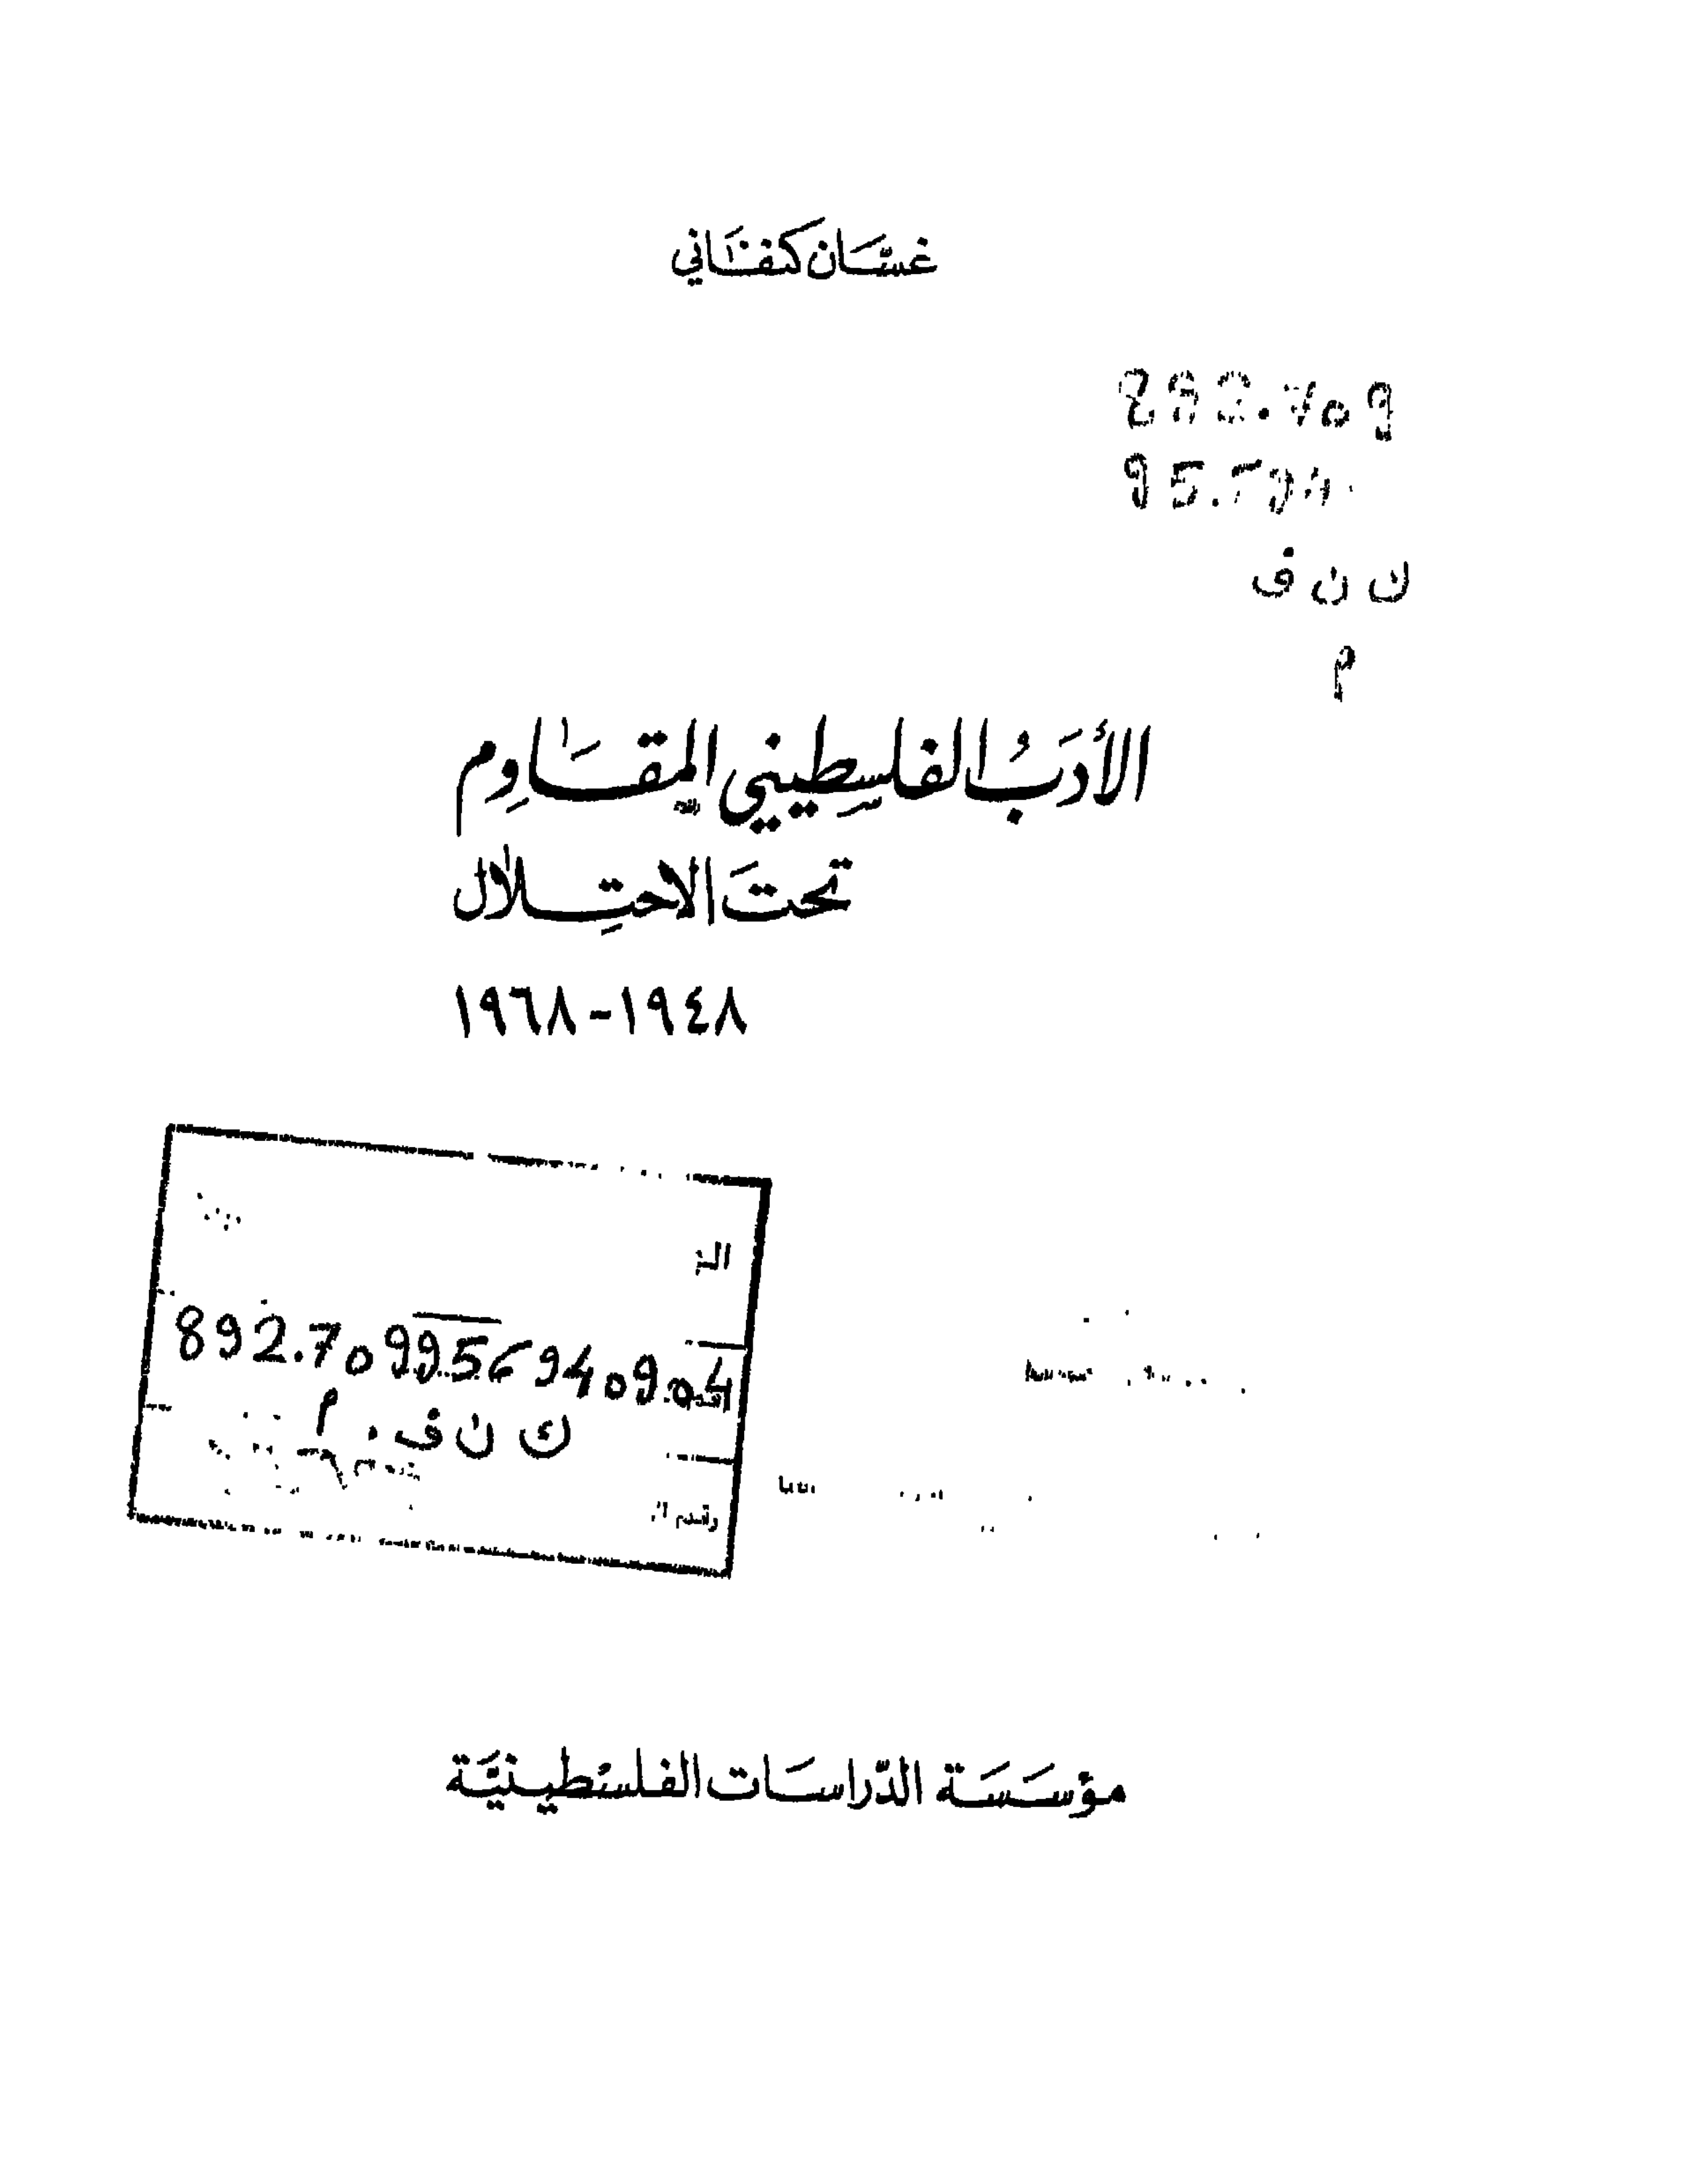 غسَّان كنفاني
892.709
ك ن ف
م
الأدَبُ الفلسِطيني المقَاوِم
تحتَ الاحتِلال
١٩٤٨-١٩٦٨
892.7099569409.04
ك ن ف . م
مؤسَسَة الدّراسَات الفلسْطينيَّة